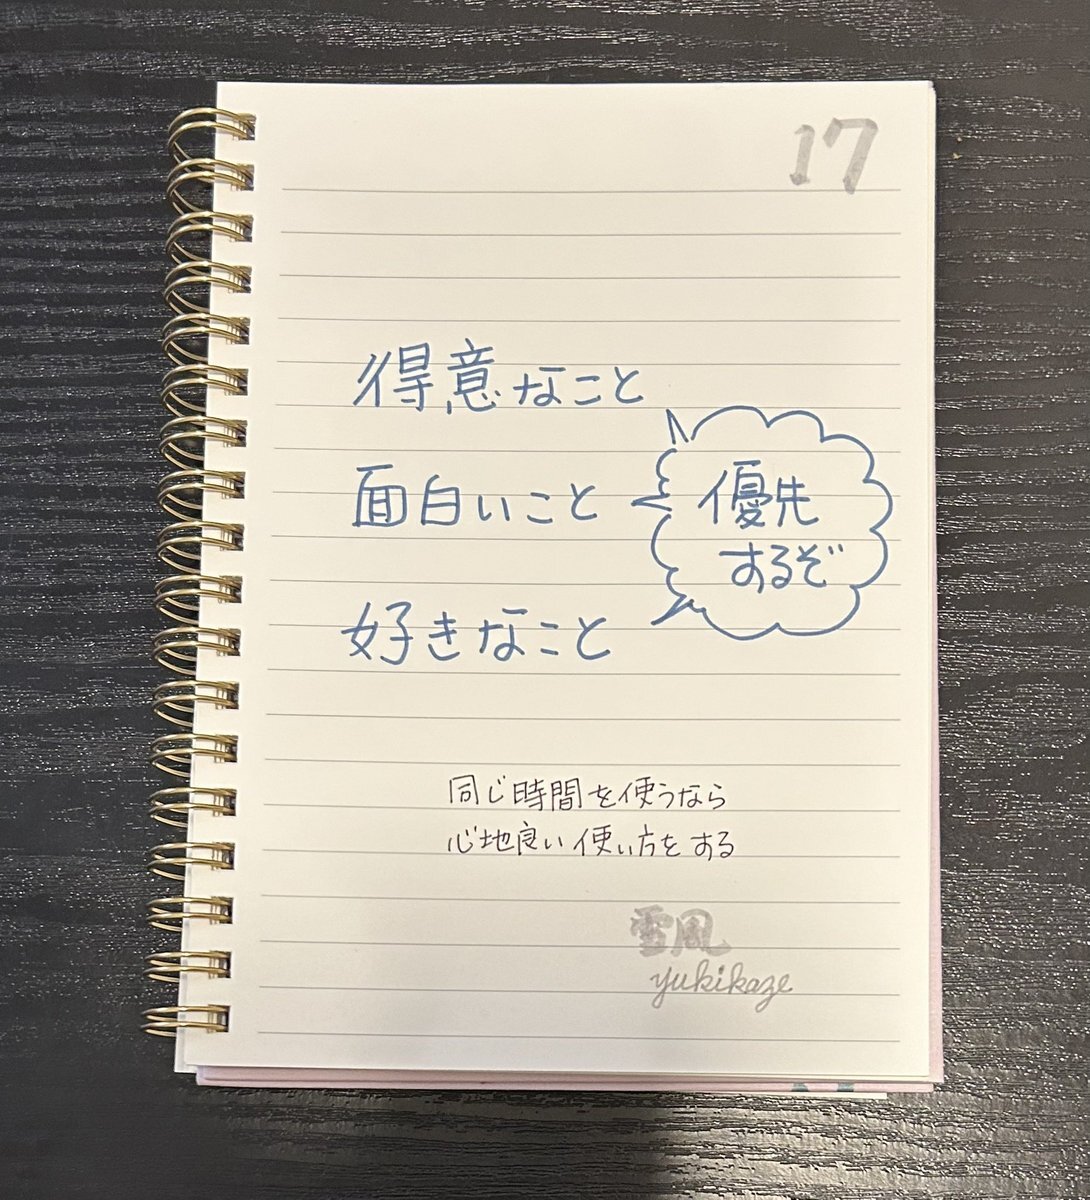 17
得意なこと
面白いこと
好きなこと
優先
するぞ
同じ時間を使うなら
心地良い使い方をする
雪風
yukikaze